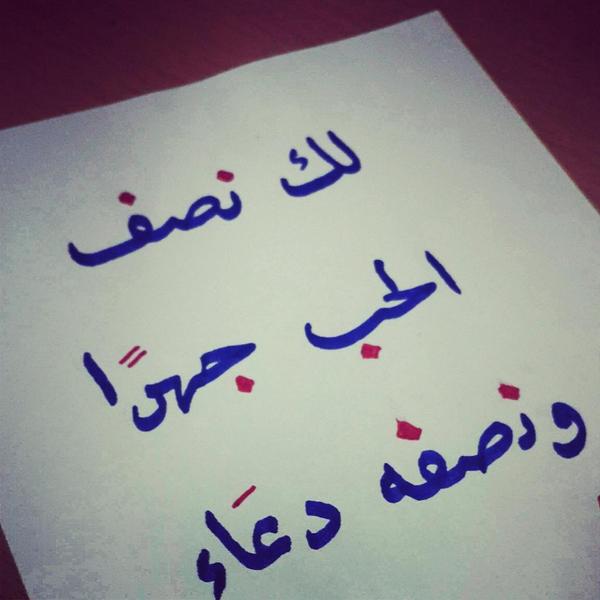 لك نصف
الحب جهرًا
ونصفه دعاَء